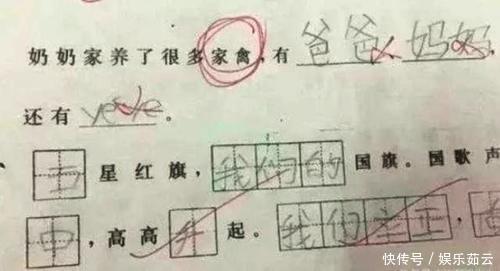 奶奶家养了很多家禽，有爸爸、妈妈，
还有yeye。
五星红旗，我们的国旗。国歌声
中，高高升起。我们立正，
快传号 / 娱乐茹云